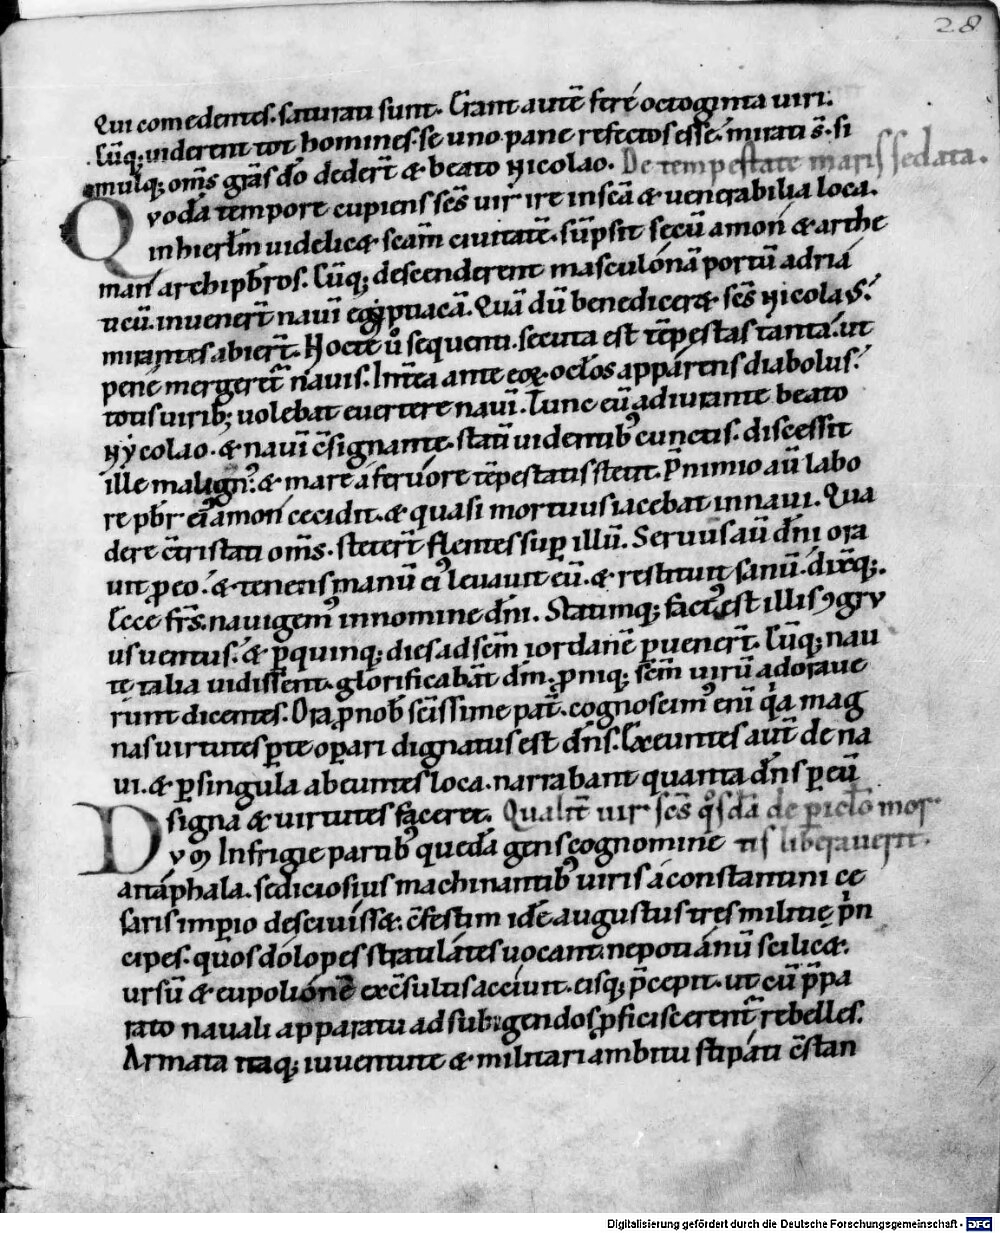 28
Qui comedentes. saturati sunt. Erant autē fere octoginta uiri.
Cūq; uiderent tot homines. se uno pane refectos esse. mirati s̄. si
mulq; om̄s grās do dedert̄ & beato Nicolao. De tempestate maris sedata.
Qvodā tempore cupiens scs̄ uir ire in scā & uenerabilia loca.
in hierlm̄ uidelic& scam̄ ciuitatē. sūpsit secū amon & arthe
man archipbr̄os. Cūq; descenderent masculonā portū adria
ticū. inuenert̄ nauī egyptiacā. Quā dū benedicer& scs̄ Nicolaus.
mirantes abiert̄. Nocte u̓ sequenti. secuta est tēpestas tanta. ut
pene mergeret̄ nauis. Int̄ea ante eoꝝ oclo̓s apparens diabolus.
totis uirib; uolebat euertere nauī. Tunc eū adiurante beato
Nycolao. & nauī c̄signante. statī uidentib᾿ cunctis. discessit
ille malign᾿. & mare a feruore tēpestatis stetit. P̄ nimio aū labo
re pbr̄ ei᾿ amon cecidit. & quasi mortuus iacebat in naui. Qua
dere c̄tristati om̄s. stetert̄ flentes suꝑ illū. Seruus aū dn̄i ora
uit ꝓ eo. & tenens manū ei᾿ leuauit eū. & restituit sanū. dixq̄;.
Ecce frs̄. nauigem᾿ in nomine dn̄i. Statimq; fact᾿ est illis ꝯgru
us uentus. & ꝑ quinq; dies ad scm̄ iordanē ꝑuenert̄. Cūq; nau
te talia uidissent. glorificabāt dm̄. ꝓniq; scm̄ uirū adoraue
runt dicentes. Ora ꝓ nob᾿ scissime pat̄. cognoscim᾿ enī qa̓ mag
nas uirtutes ꝑ te oꝑari dignatus est dn̄s. Exeuntes aut̄ de na
ui. & ꝑ singula abeuntes loca. narrabant quanta dn̄s ꝑ eū
signa & uirtutes faceret. Qualit̄ uir scs̄ qo̓sdā de ꝑiclo̓ mor
Dvm In frigie partib᾿ quedā gens cognomine tis liberauerit.
attaphala. sediciosius machinantib᾿ uiris a constantini ce
saris imꝑio desciuiss&. c̄festim idē augustus tres militie pn̓
cipes. quos dolopes stratilates uocant. nepotianū scilic&.
ursū & eupolionē exc̄sultis acciuit. eisq; p̄cepit. ut cū p̄pa
rato nauali apparatu ad subigendos ꝓficiscerent̄ rebelles.
Armata itaq; iuuentute & militari ambitu stipati c̄stan
Digitalisierung gefördert durch die Deutsche Forschungsgemeinschaft - DFG